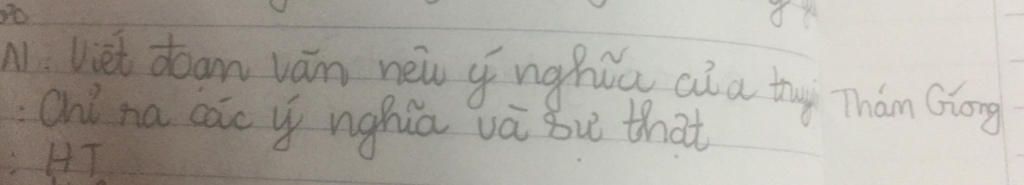 N1: Viết đoạn văn nêu ý nghĩa của truyện Thánh Gióng
: Chỉ ra các ý nghĩa và sự thật
: HT